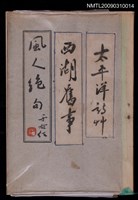 NMTL20090310014
太平洋詩艸
西湖舊事
風人絶句